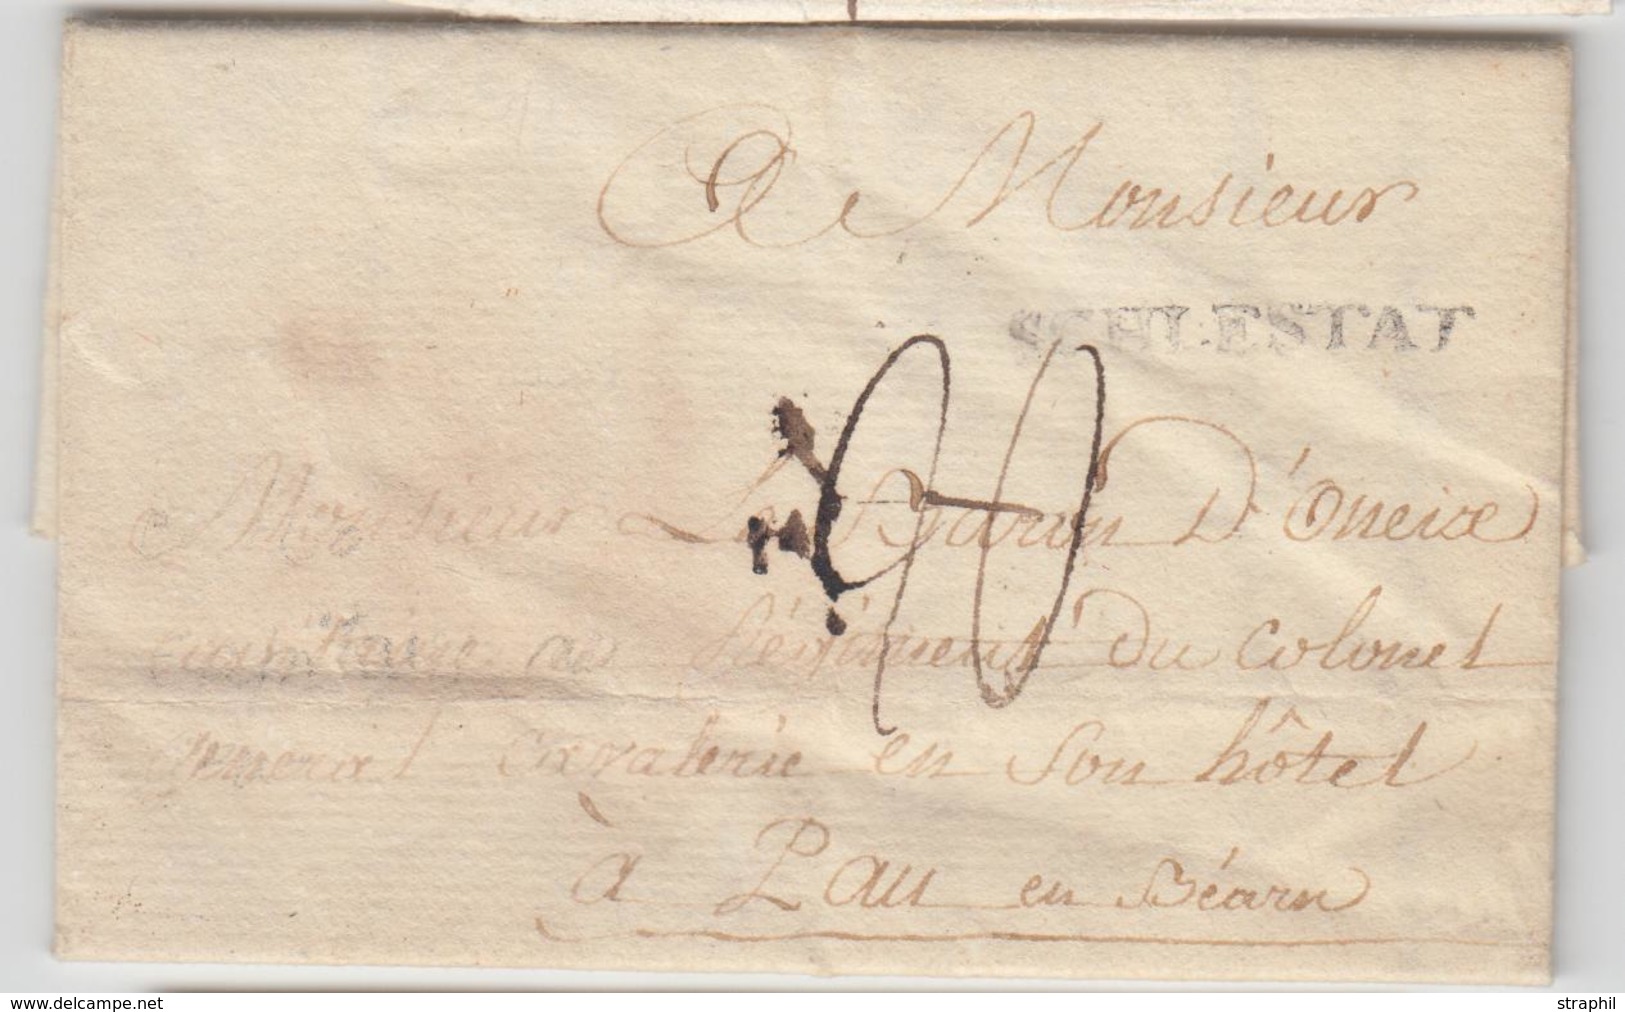 A Monsieur
SCHLESTAT
Monsieur Le Baron D'oneix
capitaine au Régiment Du colonel
general cavalerie en son hôtel
à Pau en Béarn
www.delcampe.net
straphil